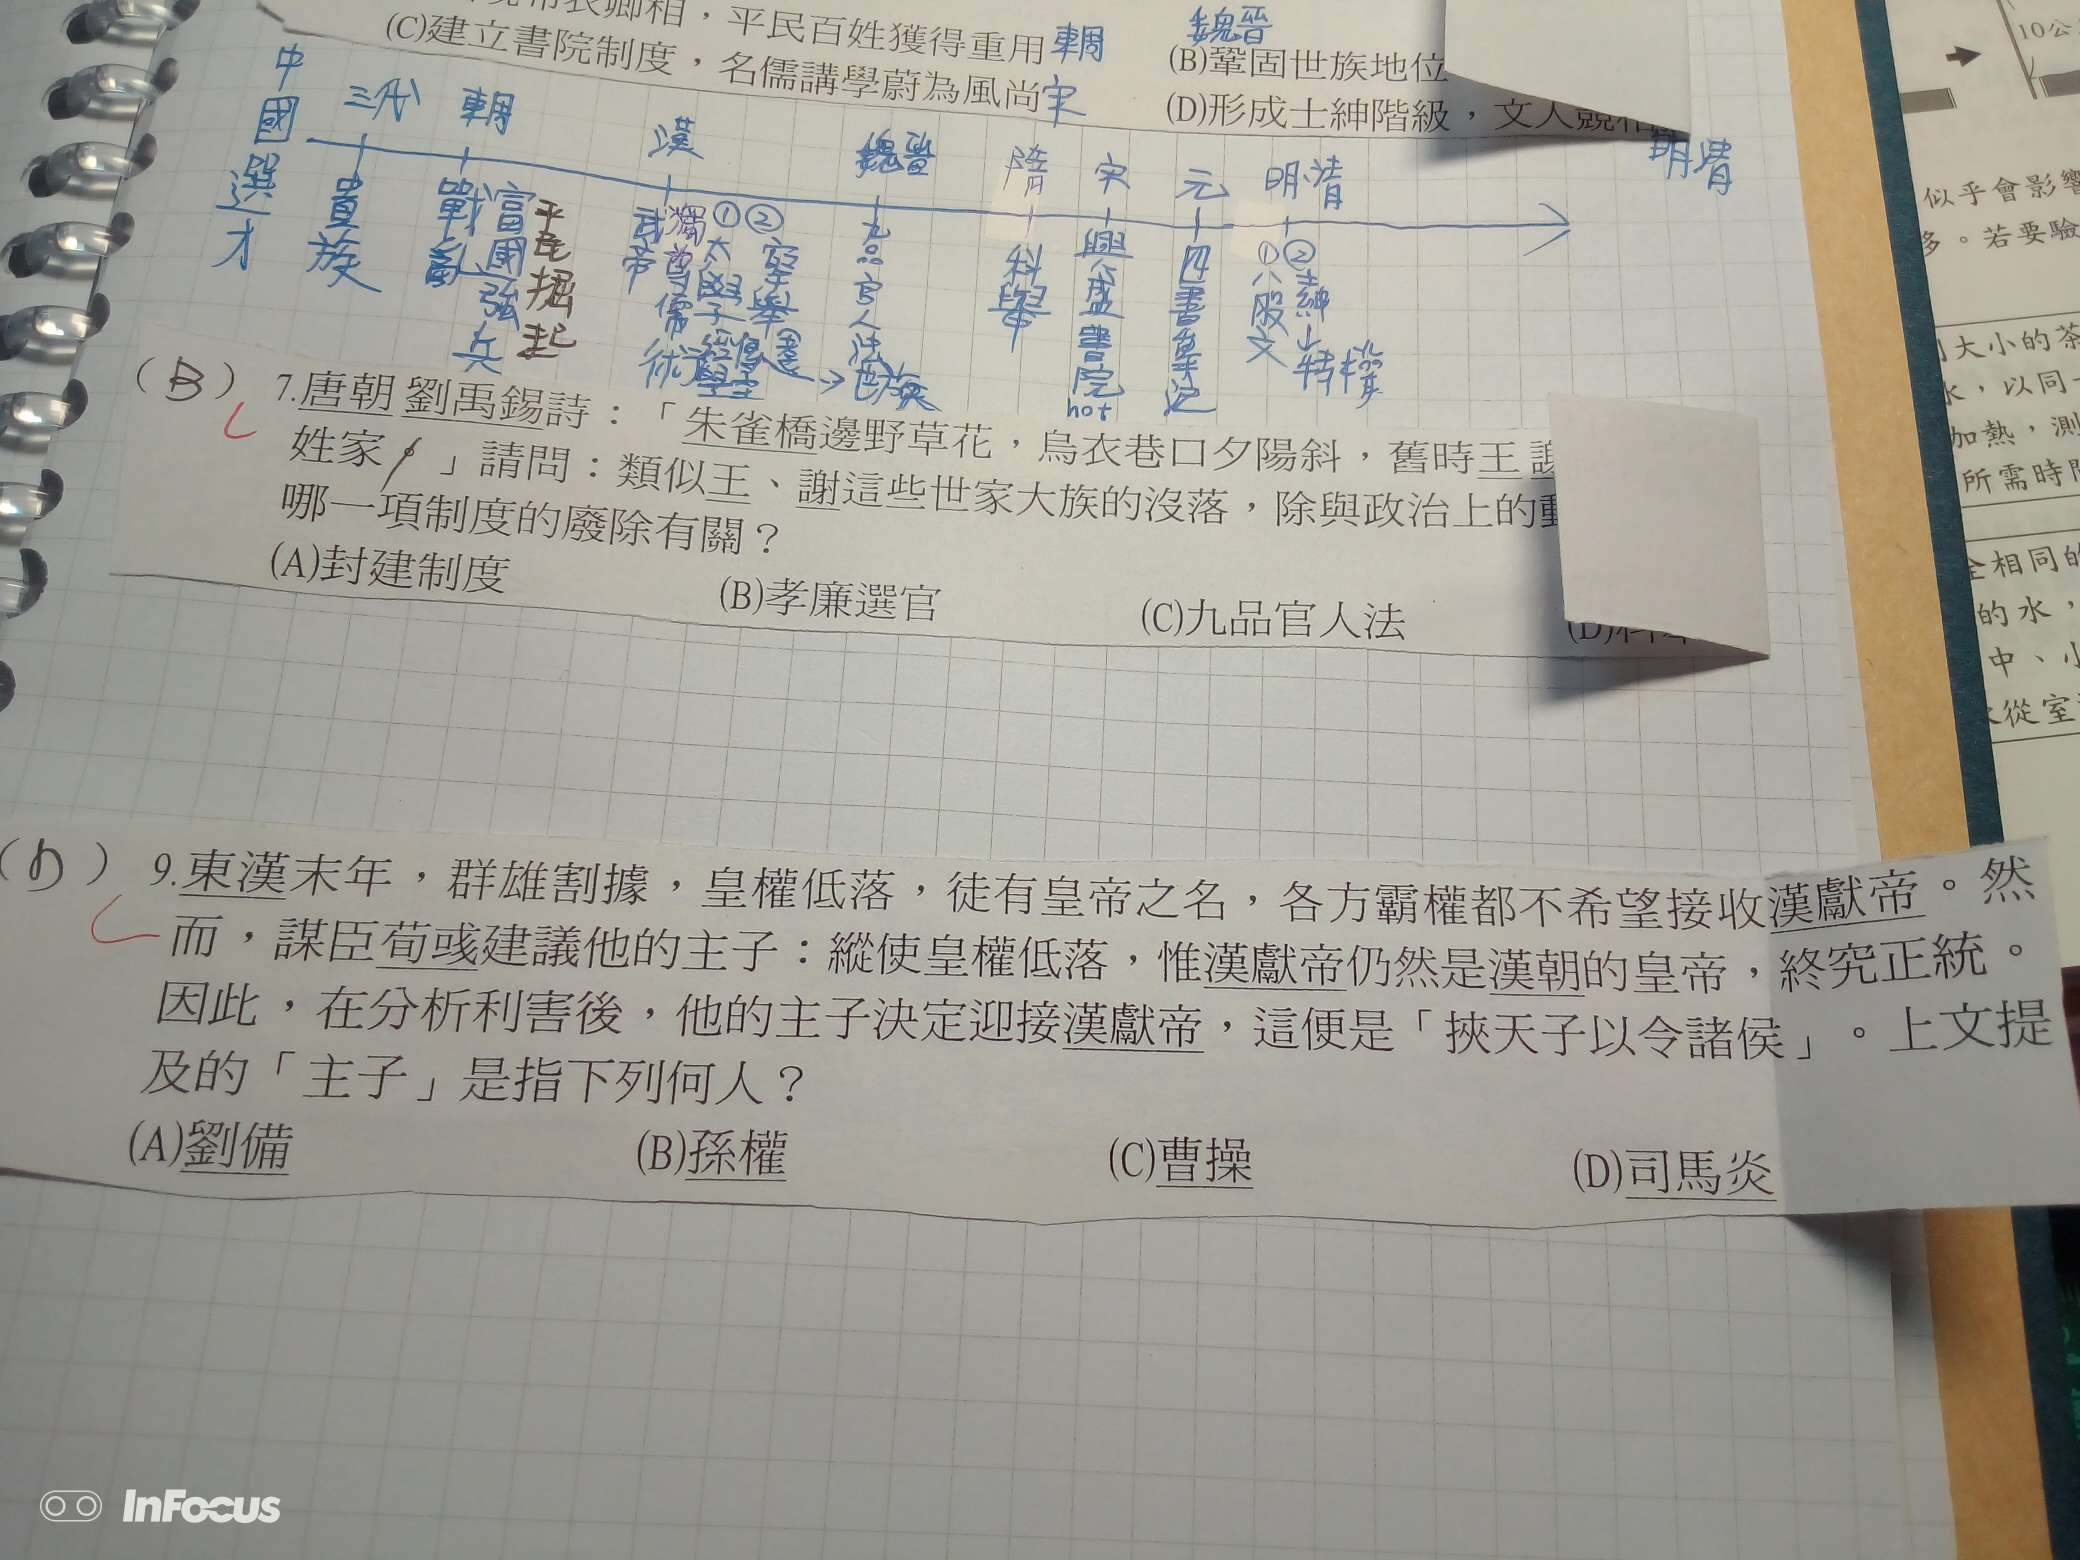 卿相，平民百姓獲得重用 東周
魏晉
(B)鞏固世族地位
(C)建立書院制度，名儒講學蔚為風尚 宋
(D)形成士紳階級，文人競相
明清
中國選才
三代 東周 漢 魏晉 隋 宋 元 明清
貴族
戰亂
富國強兵
平民掘起
武帝
獨尊儒術
①太學
②
九品官人法
世族
科舉
興盛書院hot
四書集注
①八股文
②士紳
特權
(B) 7.唐朝劉禹錫詩：「朱雀橋邊野草花，烏衣巷口夕陽斜，舊時王謝
姓家。」請問：類似王、謝這些世家大族的沒落，除與政治上的動
哪一項制度的廢除有關？
(A)封建制度 (B)孝廉選官 (C)九品官人法 (D)科
(D) 9.東漢末年，群雄割據，皇權低落，徒有皇帝之名，各方霸權都不希望接收漢獻帝。然
而，謀臣荀彧建議他的主子：縱使皇權低落，惟漢獻帝仍然是漢朝的皇帝，終究正統。
因此，在分析利害後，他的主子決定迎接漢獻帝，這便是「挾天子以令諸侯」。上文提
及的「主子」是指下列何人？
(A)劉備 (B)孫權 (C)曹操 (D)司馬炎
10公
似乎會影響
多。若要驗
大小的茶
水，以同
加熱，測
所需時間
全相同的
的水，
中、小
從室
InFocus